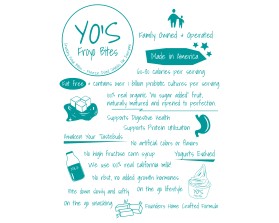 YO'S
Froyo Bites
Family Owned + Operated
Made in America
60-70 calories per serving
Fat Free + contains over 1 billion probiotic cultures per serving
100% real organic "no sugar added" fruit,
naturally matured and ripened to perfection
Supports Digestive health
Supports Protein utilization
Awaken Your Tastebuds
No artificial colors or flavors
No high fructose corn syrup
Yogurts Evolved
We use 100% real california milk!
No rbst, no added growth hormones
Bite down savory and softly
On the go lifestyle
On the go snacking
Founders Home Crafted Formula